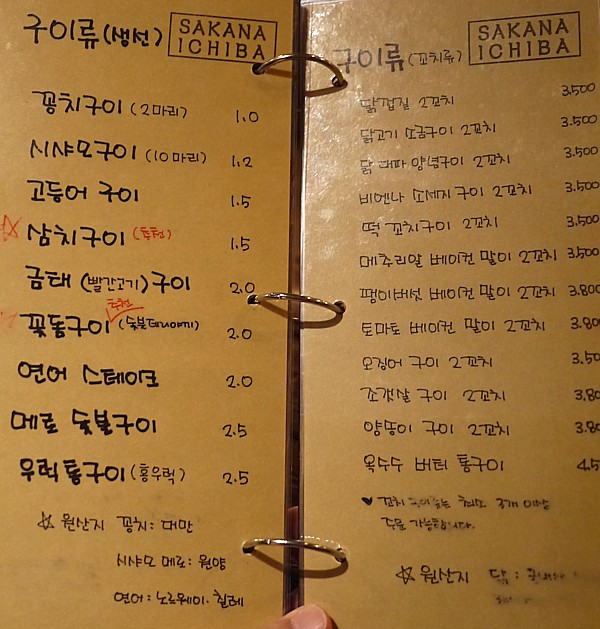 구이류(생선)
SAKANA
ICHIBA
꽁치구이 (2마리) 1.0
시샤모구이 (10마리) 1.2
고등어 구이 1.5
☆ 삼치구이 (추천) 1.5
금태 (빨간고기) 구이 2.0
추천
꽃돔구이 (숯불데리야끼) 2.0
연어 스테이크 2.0
메로 숯불구이 2.5
우럭통구이 (홍우럭) 2.5
☆ 원산지 꽁치: 대만
시샤모 메로: 원양
연어: 노르웨이. 칠레
구이류 (꼬치류)
SAKANA
ICHIBA
닭껍질 2꼬치 3.500
닭고기 소금구이 2꼬치 3.500
닭 대파 양념구이 2꼬치 3.500
비엔나 소세지 구이 2꼬치 3.500
떡 꼬치구이 2꼬치 3.500
메추리알 베이컨 말이 2꼬치 3.500
팽이버섯 베이컨 말이 2꼬치 3.800
토마토 베이컨 말이 2꼬치 3.80
오징어 구이 2꼬치 3.50
조갯살 구이 2꼬치 3.80
양송이 구이 2꼬치 3.80
옥수수 버터 통구이 4.5
♥ 꼬치 최소 3개 이상
주문 가능합니다.
☆ 원산지 닭: